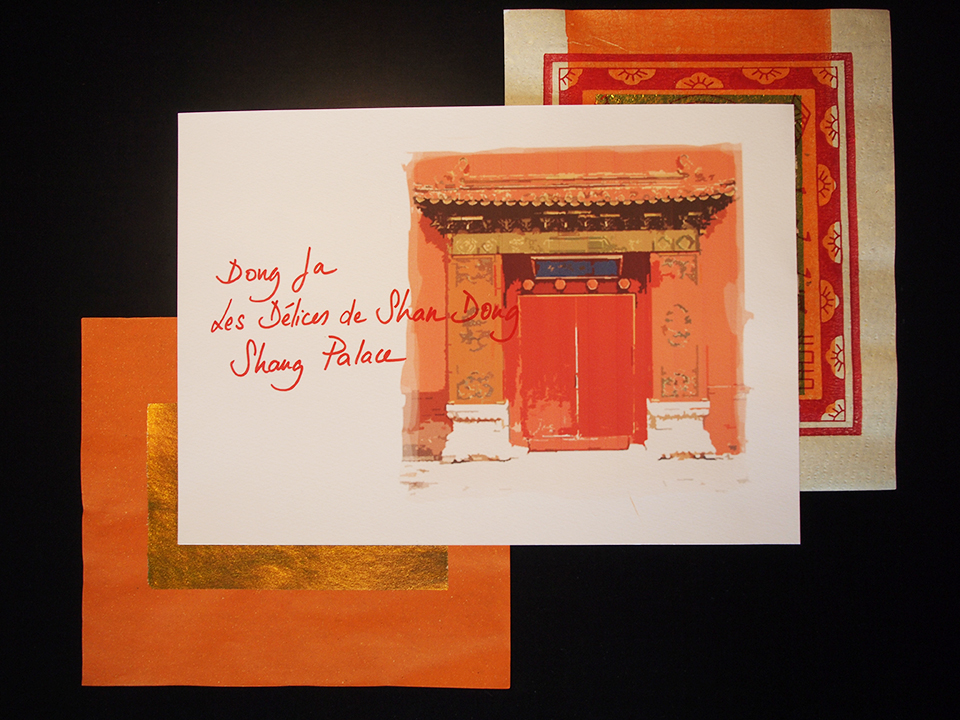 Dong Ja
Les Délices de Shan Dong
Shang Palace